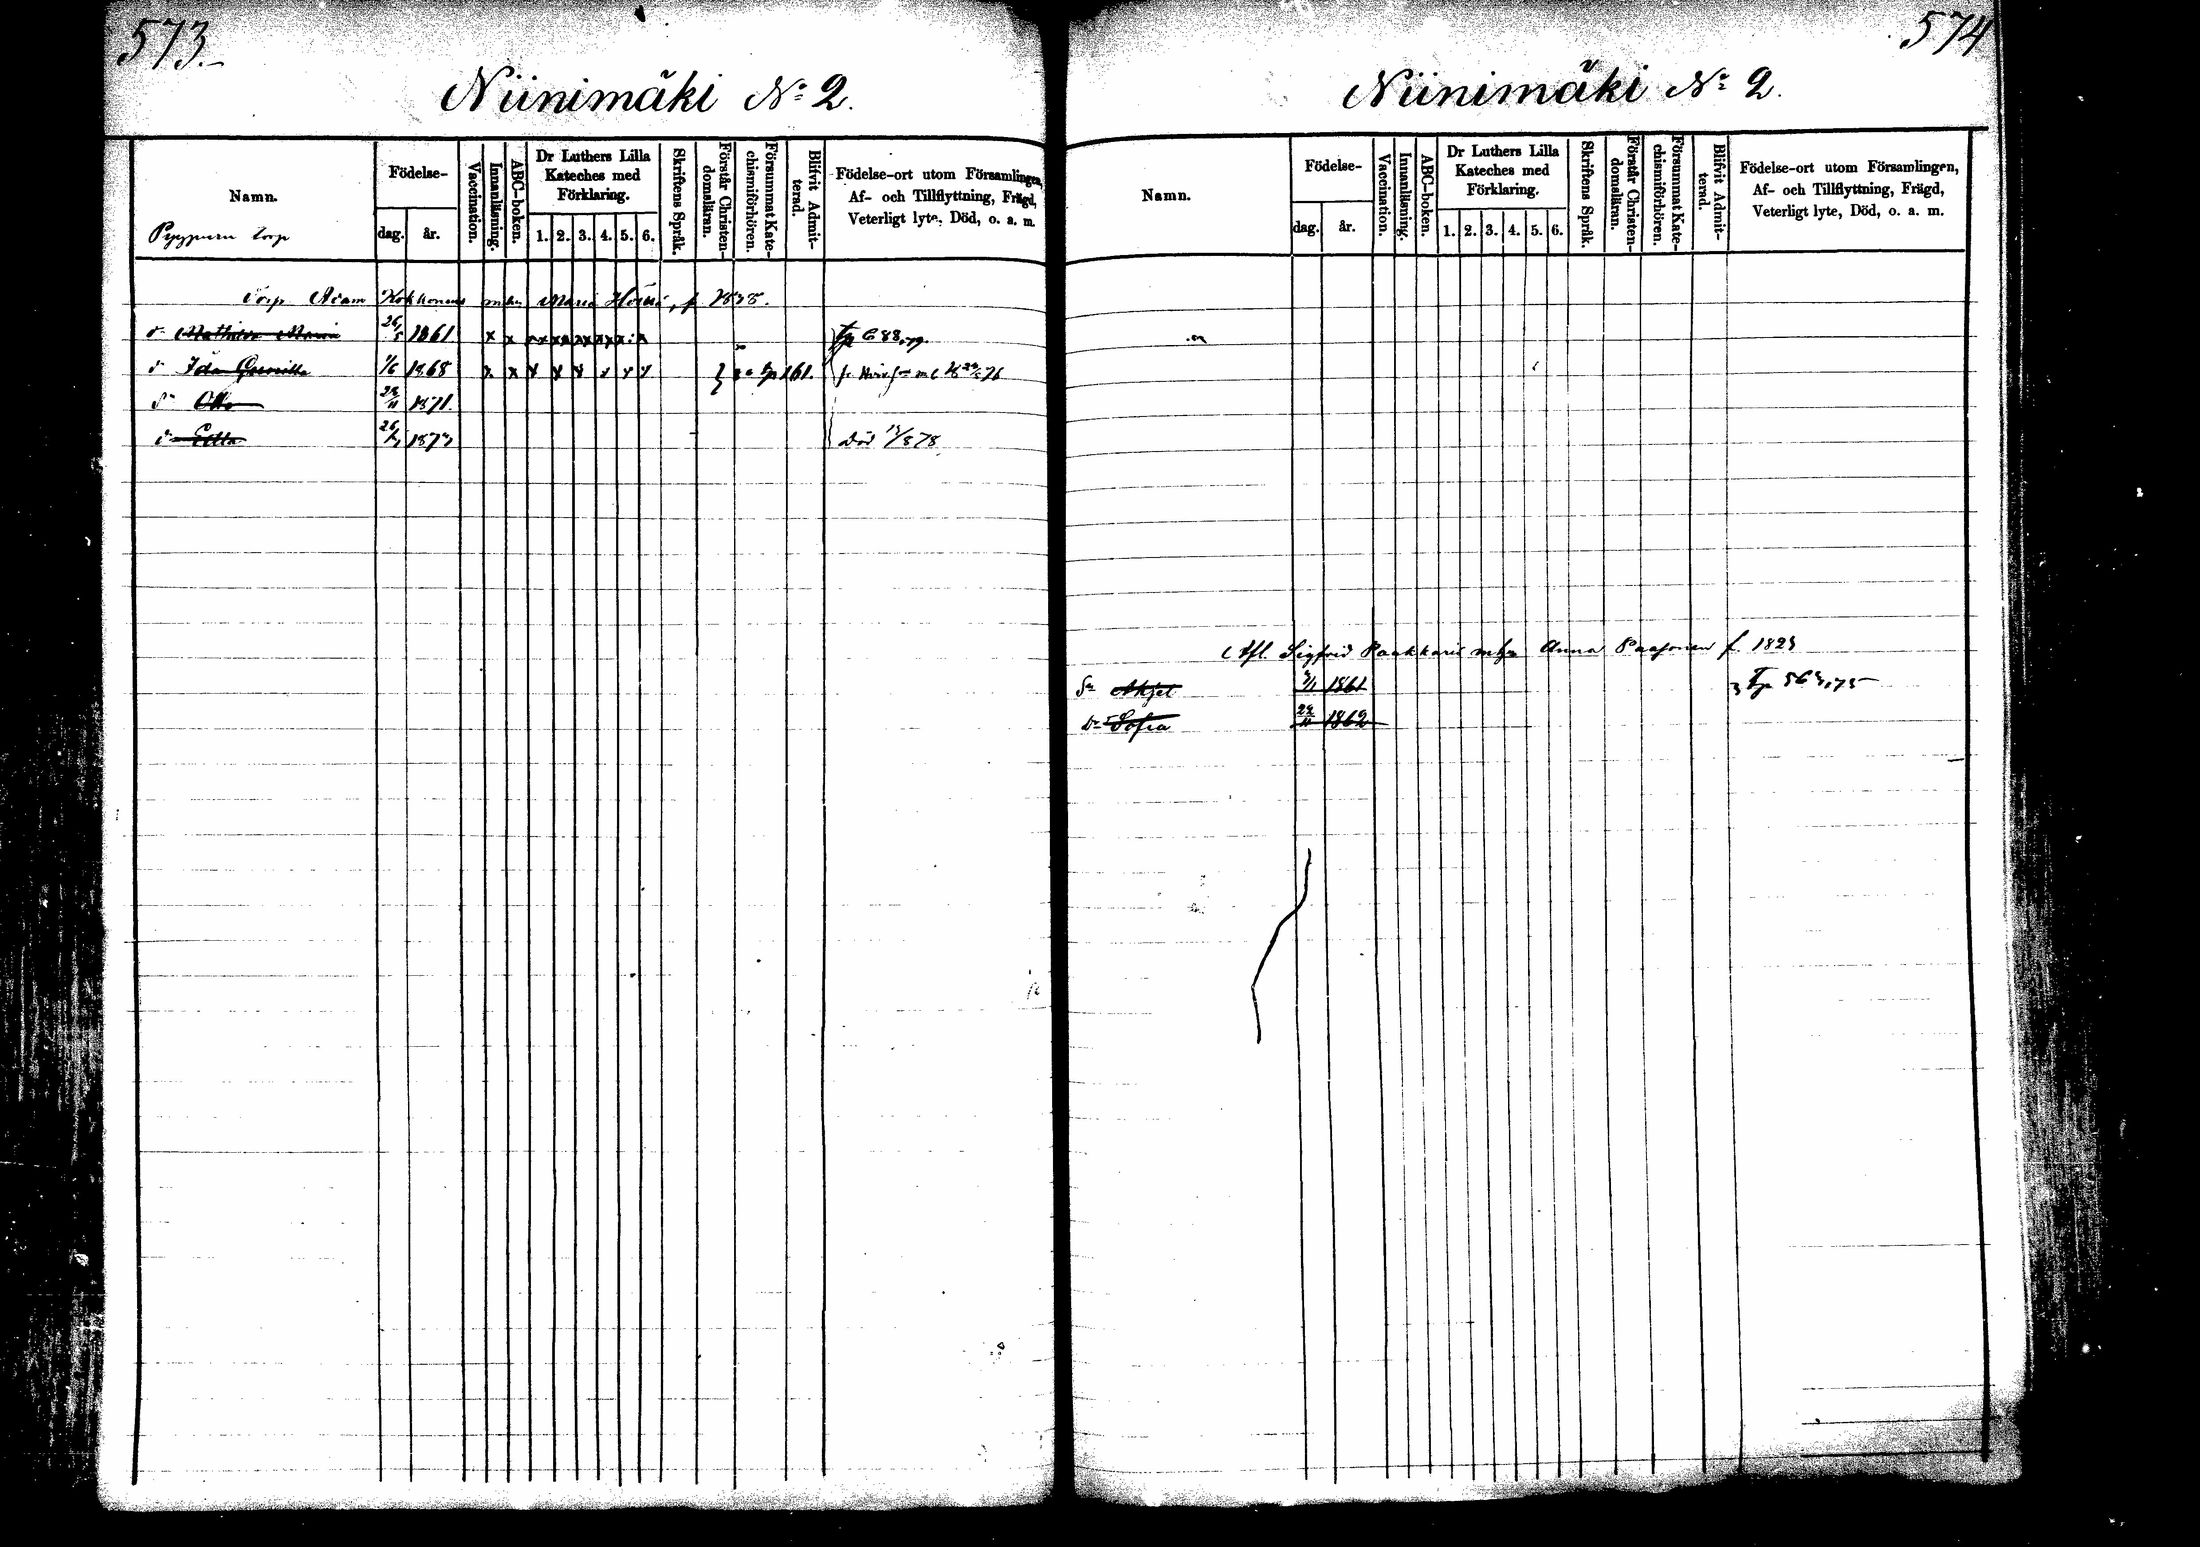 573.
Niinimäki No 2.
Namn.
Födelse-
dag.
år.
Vaccination.
Innanläsning.
ABC-boken.
Dr Luthers Lilla
Kateches med
Förklaring.
1. 2. 3. 4. 5. 6.
Skriftens Språk.
Förstår Christen-
domsläran.
Försummat Kate-
chismiförhören.
Blifvit Admit-
terad.
Födelse-ort utom Församlingen,
Af- och Tillflyttning, Frägd,
Veterligt lyte, Död, o. a. m.
torp
Torp Adam Kokkonens Maria f 1838.
Mathilda Maria 26/5 1861 x x x x x x x x
Ida 1/6 1868 x x x x x x x x 161.
Otto 1871.
Edla 1873 död
574
Niinimäki No 2.
Namn.
Födelse-
dag.
år.
Vaccination.
Innanläsning.
ABC-boken.
Dr Luthers Lilla
Kateches med
Förklaring.
1. 2. 3. 4. 5. 6.
Skriftens Språk.
Förstår Christen-
domsläran.
Försummat Kate-
chismiförhören.
Blifvit Admit-
terad.
Födelse-ort utom Församlingen,
Af- och Tillflyttning, Frägd,
Veterligt lyte, Död, o. a. m.
Afl. Sigfrid Anna Paasonen f 1823
Sn 1861
Dr Sofia 22/11 1862